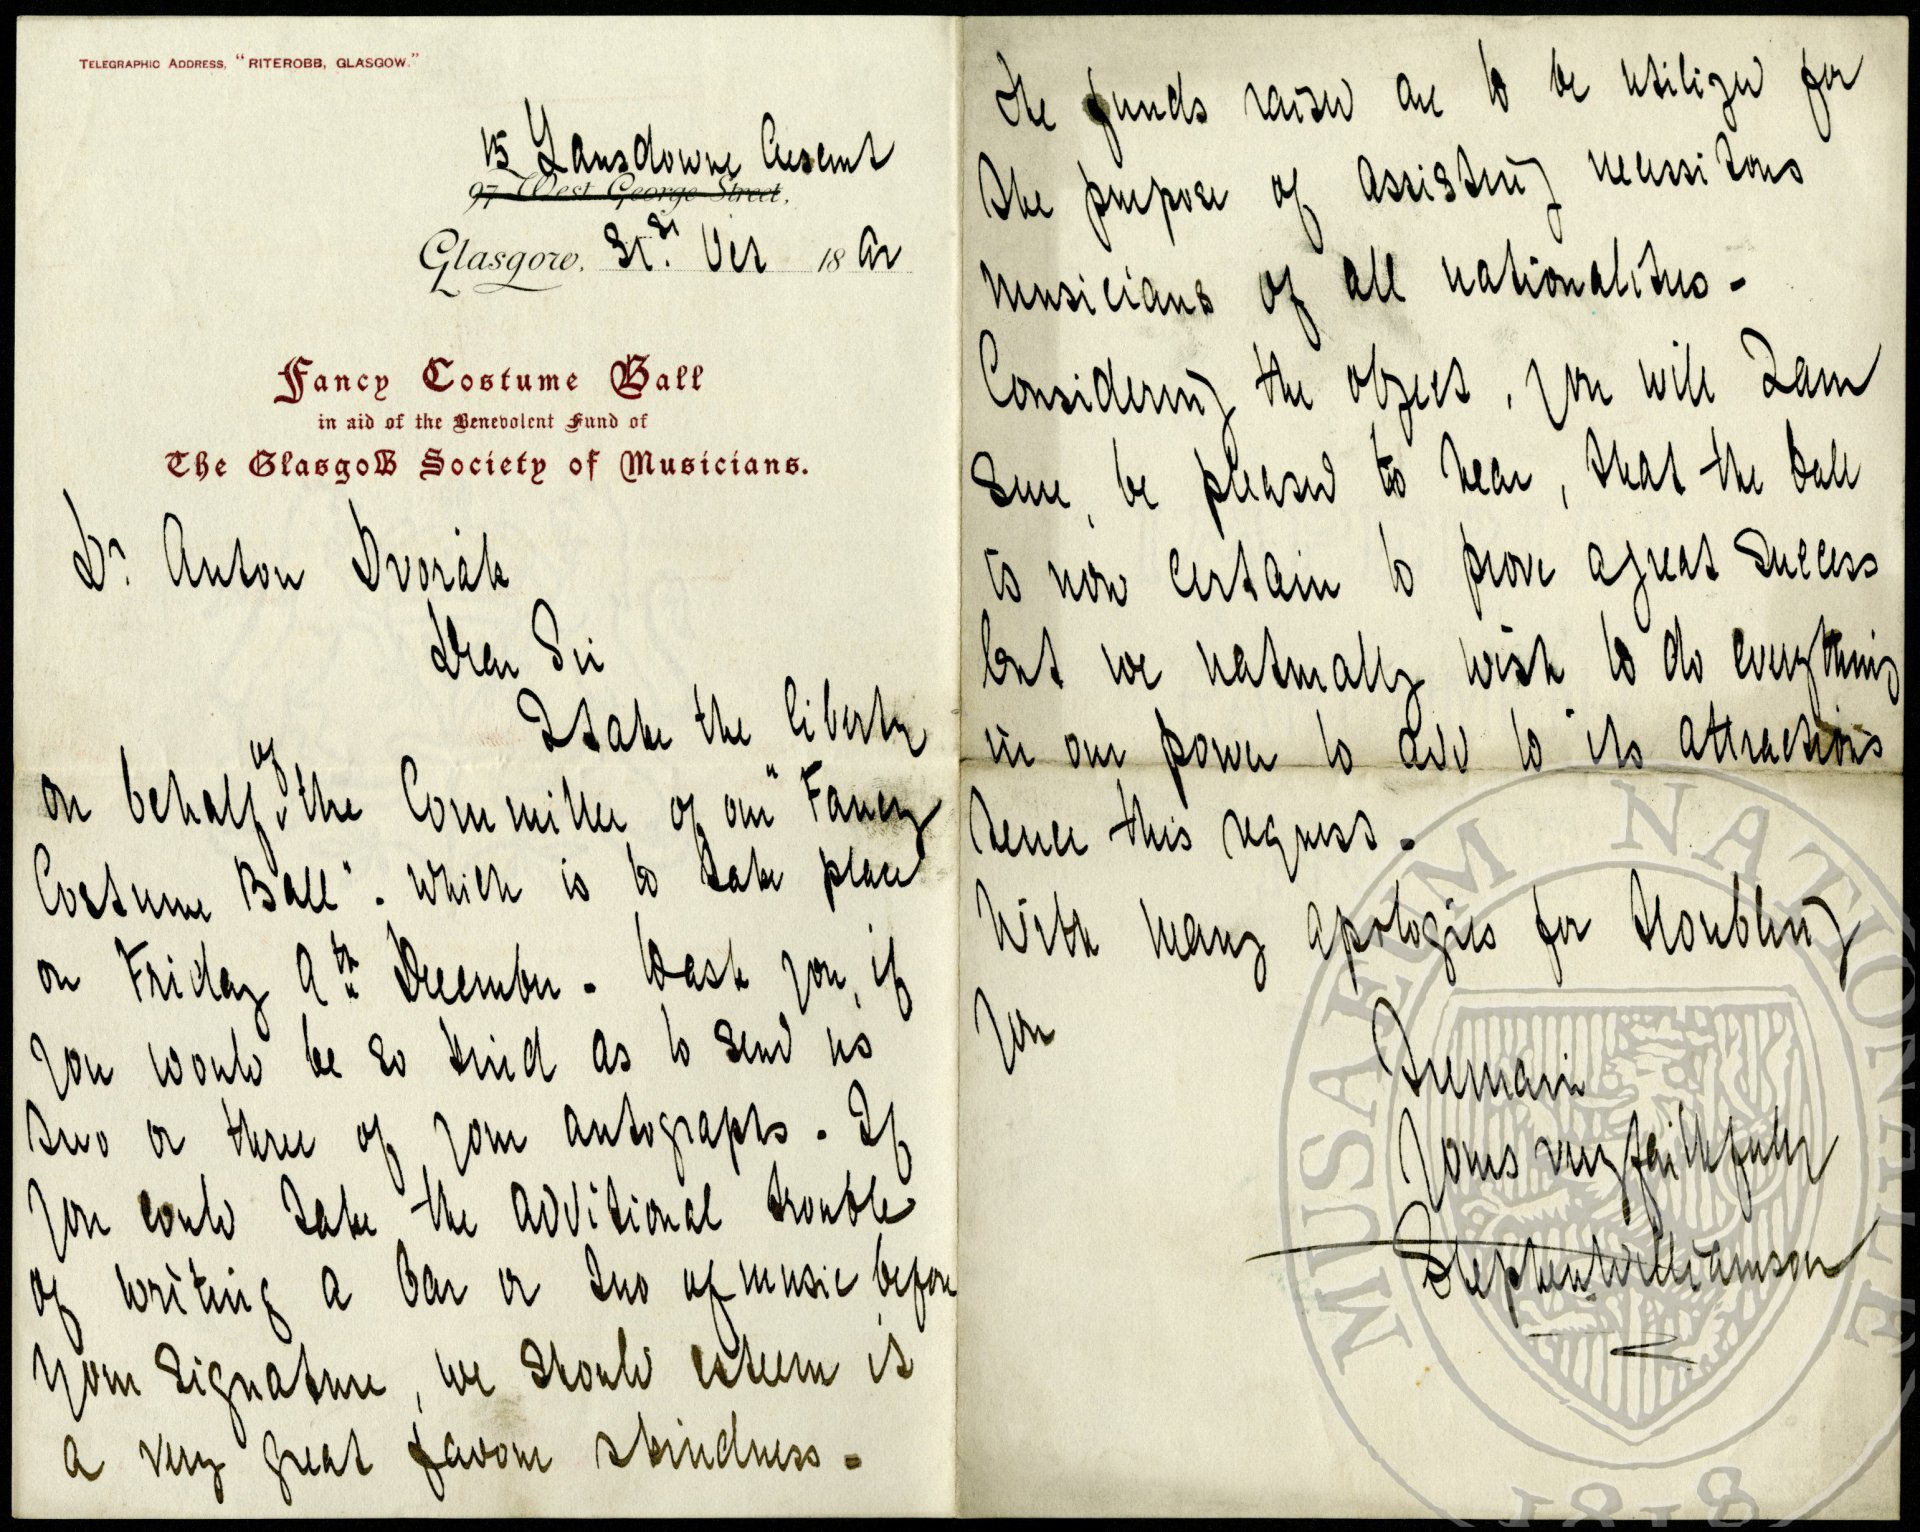 TELEGRAPHIC ADDRESS, "RITEROBB, GLASGOW."
15 Lansdowne Crescent
97 West George Street,
Glasgow, 31st Oct 1892
Fancy Costume Ball
in aid of the Benevolent Fund of
The Glasgow Society of Musicians.
Dr. Anton Dvorák
Dear Sir
I take the liberty
on behalf of the Committee of our "Fancy
Costume Ball". which is to take place
on Friday 9th December. to ask you, if
you would be so kind as to send us
two or three of your autographs. If
you could take the additional trouble
of writing a bar or two of music before
your signature, we should esteem it
a very great favour & kindness.
The funds raised are to be utilized for
the purpose of assisting necessitous
musicians of all nationalities.
Considering the object, you will I am
sure, be pleased to hear, that the ball
is now certain to prove a great success
but we naturally wish to do everything
in our power to add to its attractions
hence this request.
With many apologies for troubling
you
I remain
Yours very faithfully
Stephen Williamson
MUSAEUM NATIONALE
1818